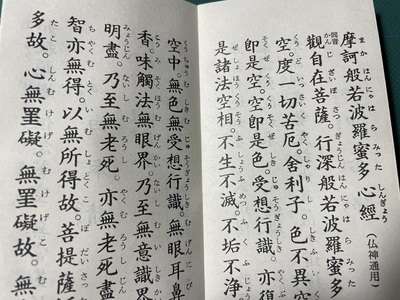 摩訶般若波羅蜜多心經（仏神通用）
觀自在菩薩。行深般若波羅蜜多
空。度一切苦厄。舍利子。色不異空
即是空。空即是色。受想行識。亦
是諸法空相。不生不滅。不垢不淨。
空中。無色。無受想行識。無眼耳鼻
香。味觸法。無眼界。乃至無意識界
明盡。乃至無老死。亦無老死盡
智亦無得。以無所得故。菩提薩
多故。心無罣礙。無罣礙故。無